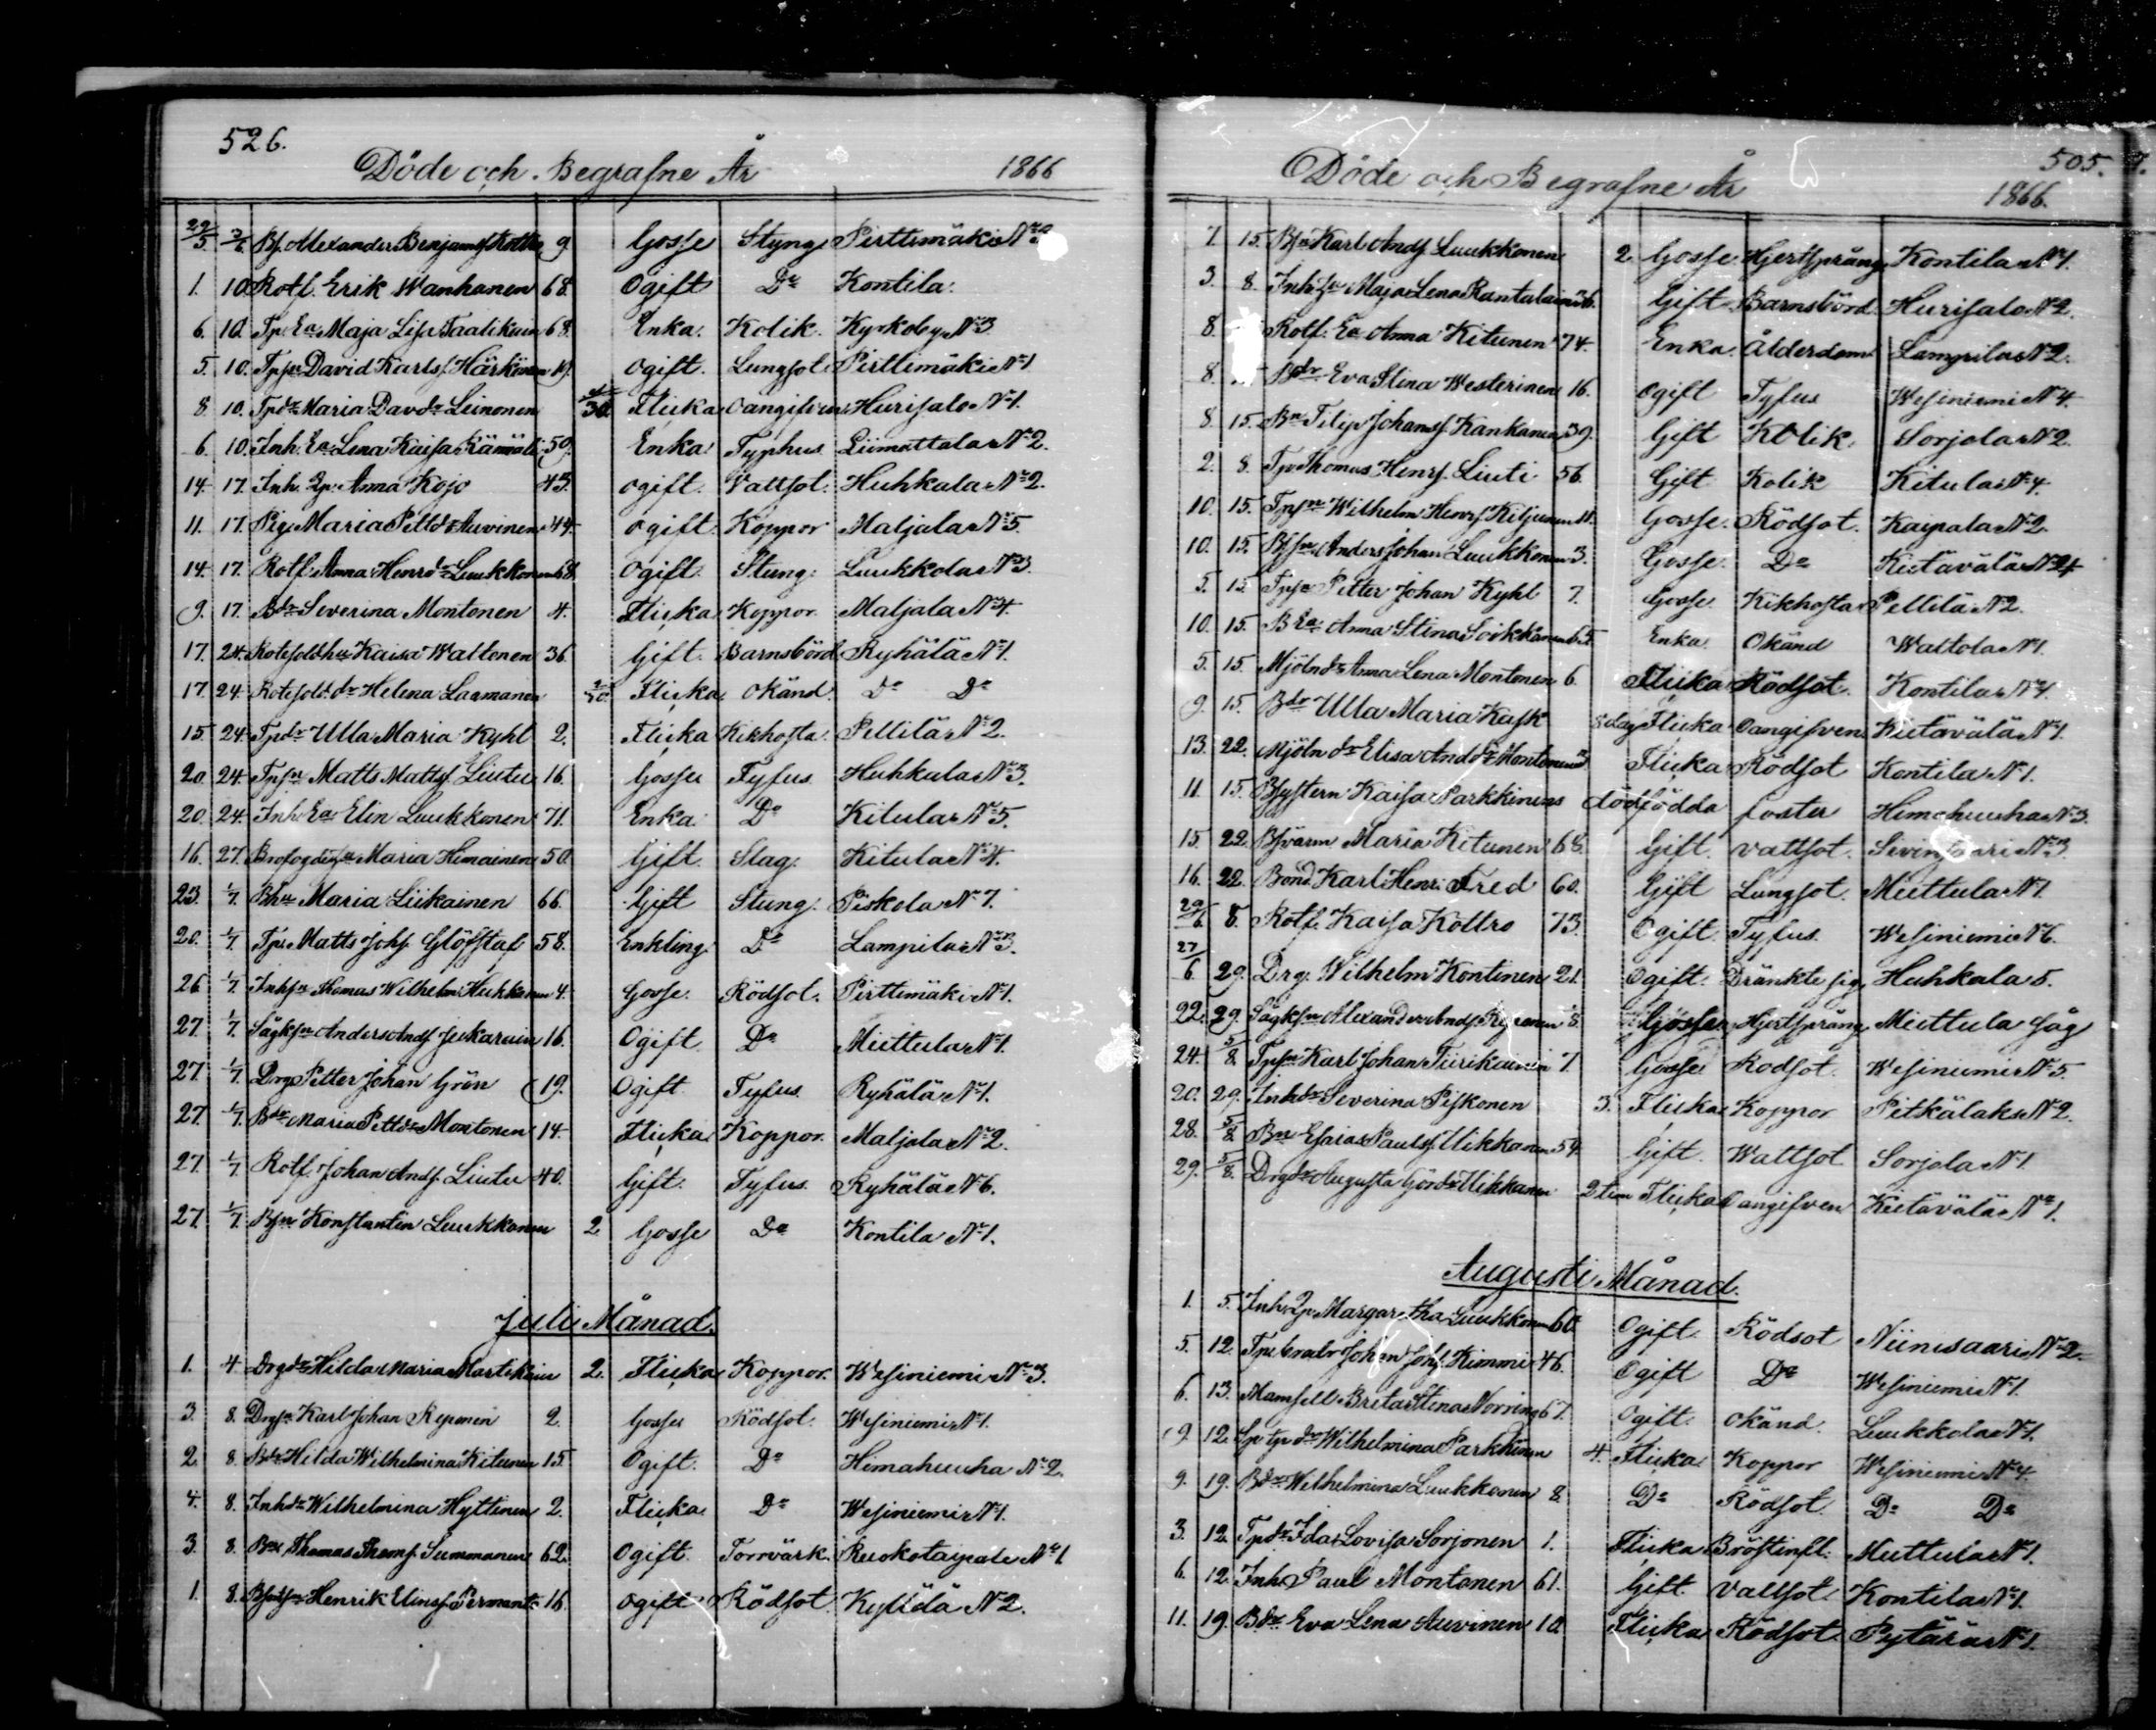 526.
Döde och Begrafne År 1866
29/5. 3/6 Bs. Alexander Benjamss Kottro 9. Gosse Styng Pirttimäki N
1. 10. Rotf. Erik Wanhanen 68. Ogift Do Kontila.
6. 10. Tp. Ea Maja Lisa Taalikain 68. Enka. Kolik. Kyrkoby N 3
5. 10. Tpsn David Karlss. Härkönen 19. Ogift. Lungsot Pirttimäki N 1
8. 10. Tpdr Maria Davdr Leinonen Flicka Oangifven Hurisalo N 1.
6. 10. Inh. Ea Lena Kaisa 59. Enka Typhus Liimattala N 2.
14. 17. Inh. Qp. Anna Kojo 43. ogift. Vattsot. Huhkala N 2.
11. 17. Pig. Maria Pettdr Auvinen 44. ogift. Koppor Maljala N 5.
14. 17. Rotf. Anna Henrdr Luukkonen 68. Ogift. Stung. Luukkola N 3.
9. 17. Bdr Severina Montonen 4. Flicka Koppor Maljala N 4.
17. 24. Rotesoldhu Kaisa Wattonen 36. Gift. Barnsbörd Ryhälä N 1.
17. 24. Rotesold. dr Helena Laamanen Flicka okänd. Do Do
15. 24. Tpdr Ulla Maria Kyhl 2. Flicka Kikhosta. Pellilä N 2.
20. 24. Tpsn Matts Mattss. Liutu 16. Gosse Tyfus Huhkala N 3.
20. 24. Inh. Ea Elin Luukkonen 71. Enka. Do Kitula N 5.
16. 27. Maria Himainen 50. Gift. Slag. Kitula N 4.
23. 1/7. Bhu Maria Liikainen 66. Gift Stung. Piskola N 7.
20. 1/7. Tp. Matts Johs. Glöfstaf 58. Enkling. Do Lampila N 3.
26. 1/7. Inhsn Thomas Wilhelm Hukkanen 4. Gosse. Rödsot. Pirttimäki N 1.
27. 1/7. Sågksn Anders Ands. 16. Ogift Do Miettula N 1.
27. 1/7. Drg. Petter Johan Grön 19. Ogift Tyfus. Ryhälä N 1.
27. 1/7. Bdr Maria Pettdr Montonen 14. Flicka Koppor. Maljala N 2.
27. 1/7 Rotf. Johan Ands. Liutu 40. Gift. Tyfus Ryhälä N 6.
27. 1/7. Bsn Konstantin Luukkonen 2. Gosse Do Kontila N 1.
Juli Månad.
1. 4 Drgdr Hilda Maria Martikain 2. Flicka Koppor. Wesiniemi N 3.
3. 8. Drgsn Karl Johan Reponen 2. Gosse Rödsot. Wesiniemi N 1.
2. 8. Bdr Hilda Wilhelmina Kitunen 15. Ogift. Do Himahuuha N 2.
4. 8. Inhdr Wilhelmina Hyttinen 2. Flicka Do Wesiniemi N 1.
3. 8. Bn Thomas Thoms. Summanen 62. Ogift Torrvärk. Ruokotaipale N 1
1. 8. Henrik Elinss. 16. ogift Rödsot. Kyllälä N 2.
505.
Döde och Begrafne År 1866.
7. 15. Bsn Karl Ands. Luukkonen 2. Gosse Hjertsprång Kontila N 1.
3. 8. Inhhu Maja Lena Rantalain 36. Gift Barnsbörd. Hurisalo N 2.
8. Rotf. Ea Anna Kitunen 74. Enka. Ålderdom Lampila N 2.
8. Bdr Eva Stina Westerinen 16. ogift Tyfus Wesiniemi N 4.
8. 15. Bn Filip Johanss. Kankanen 39. Gift Kolik. Sorjola N 2.
2. 8. Tp. Thomas Henrs. Liuti 56. Gift Kolik Kitula N 4.
10. 15. Tpsn Wilhelm Henrs. Kiljunen 11. Gosse. Rödsot. Kaipala N 2.
10. 15. Bssn Anders Johan Luukkonen 3. Gosse. Do Kietävälä N 24
5. 15. Tpsn Petter Johan Kyhl 7. Gosse. Kikhosta Pellilä N 2.
10. 15. B Ea Anna Stina Soikkanen 65. Enka Okänd Wattola N 1.
5. 15. Mjöln dr Anna Lena Montonen 6. Flicka Rödsot. Kontila N 1.
9. 15. Bdr Ulla Maria Kusk 8 dag Flicka Oangifven Kietävälä N 1.
13. 22. Mjöln dr Elisa Anddr Montonen 3. Flicka Rödsot Kontila N 1.
11. 15. Bsystern Kaisa Parkkinens dödfödda foster Himahuuha N 3.
15. 22. Bsvärm Maria Kitunen 68. Gift. vattsot. N 3.
16. 22. Bond. Karl Henr. Fred 60. Gift Lungsot. Miettula N 1.
29/6. 8. Rotf. Kaisa Kottro 73. Ogift. Tyfus. Wesiniemi N 6.
27/6. 29. Drg. Wilhelm Kontinen 21. Ogift. Dränkte sig Huhkala 5.
22. 29. Sågksn Alexander Ands. Reponen 8. Gosse Hjertsprång Miettula såg
24. 5/8. Tpsn Karl Johan Tiirikainen 7. Gosse Rödsot. Wesiniemi N 5.
20. 29. Inhdr Severina Piskonen 3. Flicka Koppor Pitkälaks N 2.
28. 5/8. Bn Esaias Paulss. Ukkonen 54. Gift. Wattsot Sorjola N 1.
29. 5/8. Drgdr Augusta 2 tim Flicka Oangifven Kietävälä N 1.
Augusti Månad.
1. 5. Inh. Qp. Margaretha Luukkonen 60. Ogift. Rödsot Niinisaari N 2.
5. 12. Johan Johs. Kimmi 46. Ogift Do Wesiniemi N 1.
6. 13. Mamsell Brita Stina Norring 67. Ogift. okänd. Luukkola N 1.
9. 12. Wilhelmina Parkkinen 4. Flicka Koppor Wesiniemi N 4.
9. 19. Bdr Wilhelmina Luukkonen 8. Do Rödsot. Do Do
3. 12. Tpdr Ida Lovisa Sorjonen 1. Flicka Bröstinfl. Miettula N 1.
6. 12. Inh. Paul Montonen 61. Gift. vattsot. Kontila N 1.
11. 19. Bdr Eva Lena Auvinen 10. Flicka Rödsot. Pytärä N 1.